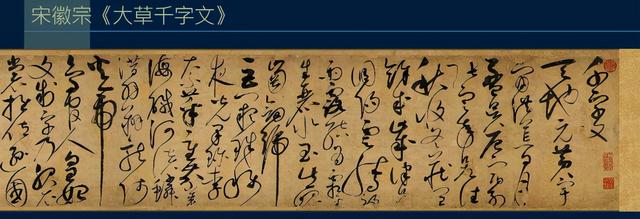 宋徽宗《大草千字文》
千字文
天地元黃宇
宙洪荒日月
盈昃辰宿列
張寒来暑往
秋收冬藏閏
餘成歲律
調陽雲騰
雨露結為霜
生麗水玉出崑
崗劍號
巨闕珠稱
夜光果珍李
柰菜重芥
海鹹河淡鱗
潛羽翔龍師
火帝
鳥官人皇始
文字乃服
裳推位讓國